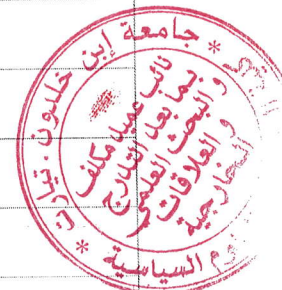 * جامعة ابن خلدون . تيارت *
وم السياسية
نائب عميد مكلف
بما بعد التدرج
و البحث العلمي
و العلاقات
الخارجية